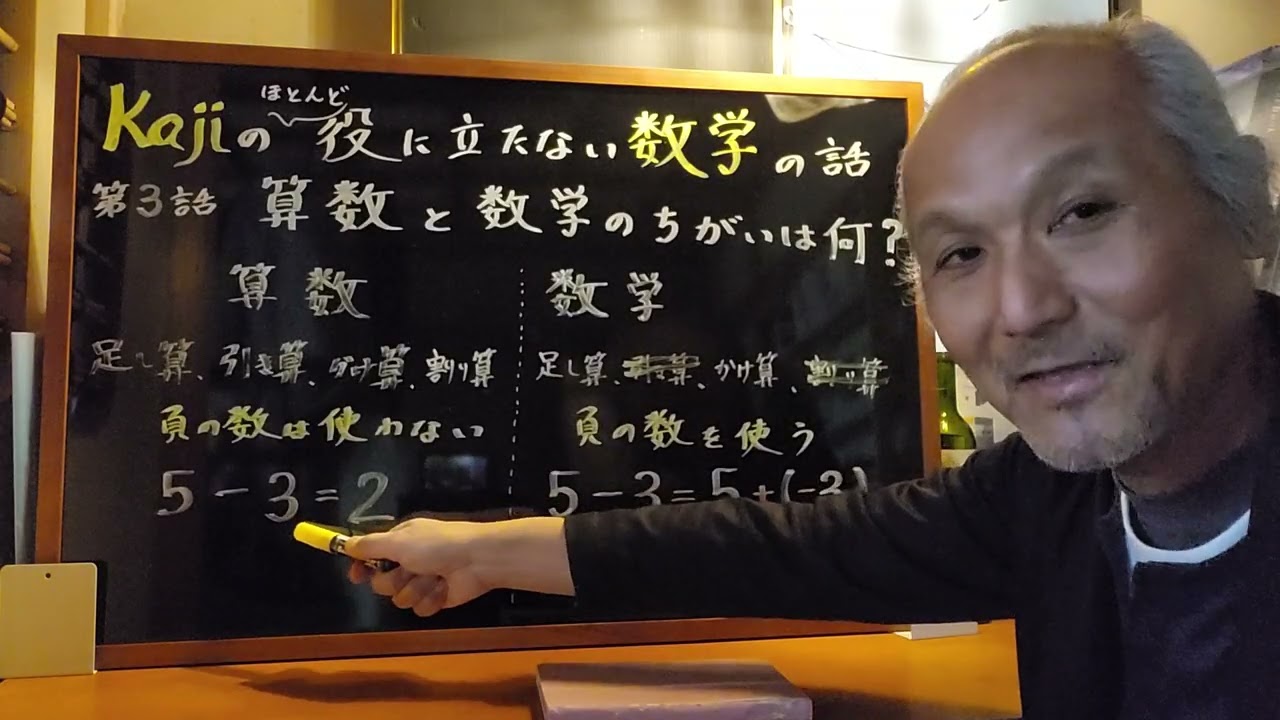 Kajiの ほとんど 役に立たない数学の話
第3話 算数と数学のちがいは何?
算数
足し算、引き算、かけ算、割り算
負の数は使わない
5-3=2
数学
足し算、引き算、かけ算、割り算
負の数を使う
5-3=5+(-3)